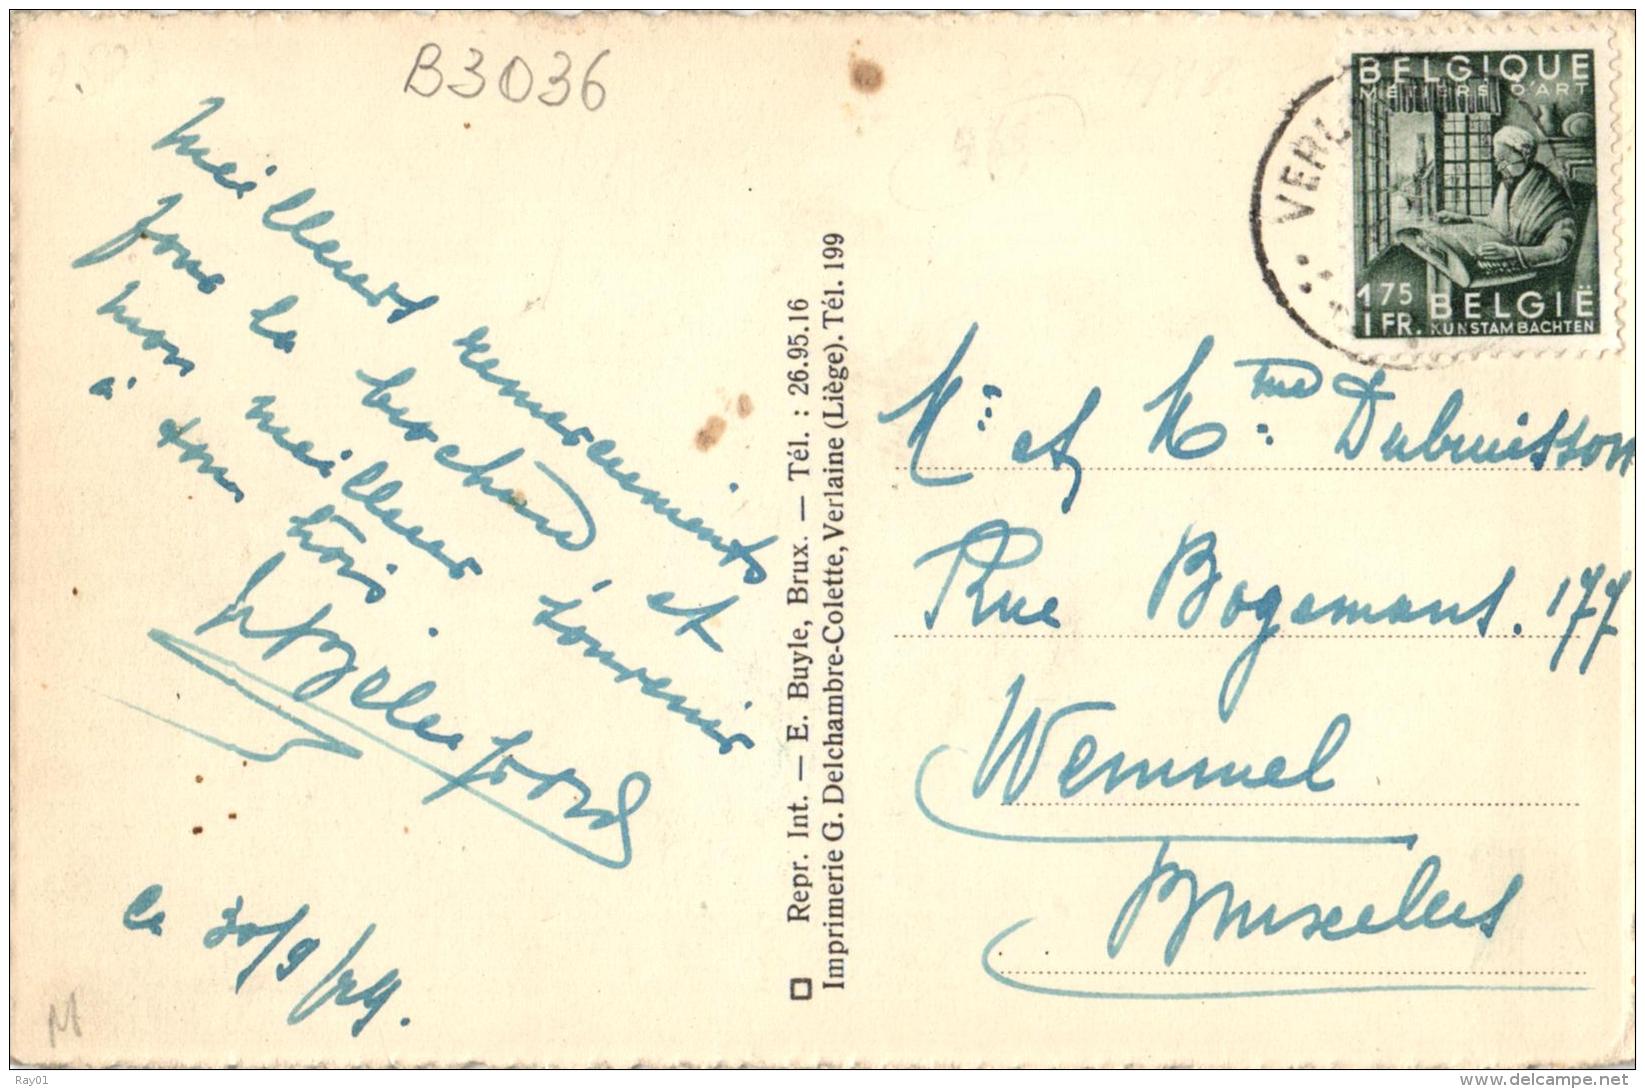 B3036
Meilleurs remerciements
pour la brochure et
mon meilleur souvenir
à tous trois
le 30/9/49.
Repr. Int. — E. Buyle, Brux. — Tél. : 26.95.16
Imprimerie G. Delchambre-Colette, Verlaine (Liège). Tél. 199
BELGIQUE
METIERS D'ART
1 75
1 FR. BELGIË
KUNSTAMBACHTEN
VERL
Mr et Mme Dubuisson
Rue Bogemans. 177
Wemmel
Bruxelles
M
Ray01
delcampe.net